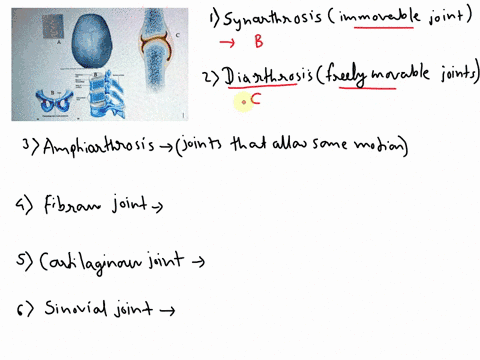 1) Synarthrosis (immovable joint)
→ B
2) Diarthrosis (freely movable joints)
C
A
C
B
B
3) Amphiarthrosis → (joints that allow some motion)
4) Fibrow joint →
5) Cartilaginow joint →
6) Sinovial joint →